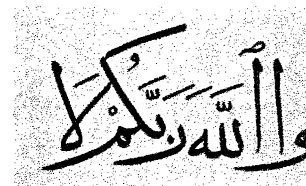 وا اللّٰه رَبَّكُمْ لَا